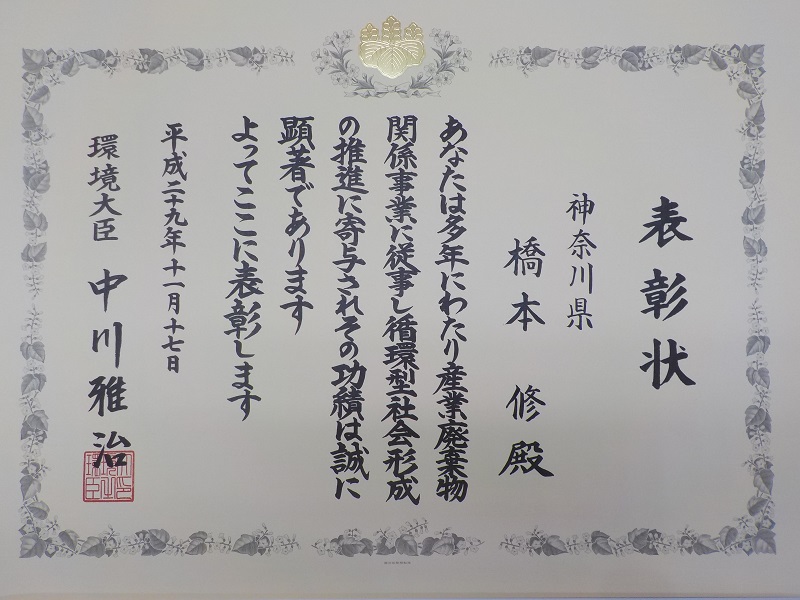 表彰状
神奈川県
橋本 修殿
あなたは多年にわたり産業廃棄物
関係事業に従事し循環型社会形成
の推進に寄与されその功績は誠に
顕著であります
よってここに表彰します
平成二十九年十一月十七日
環境大臣 中川雅治